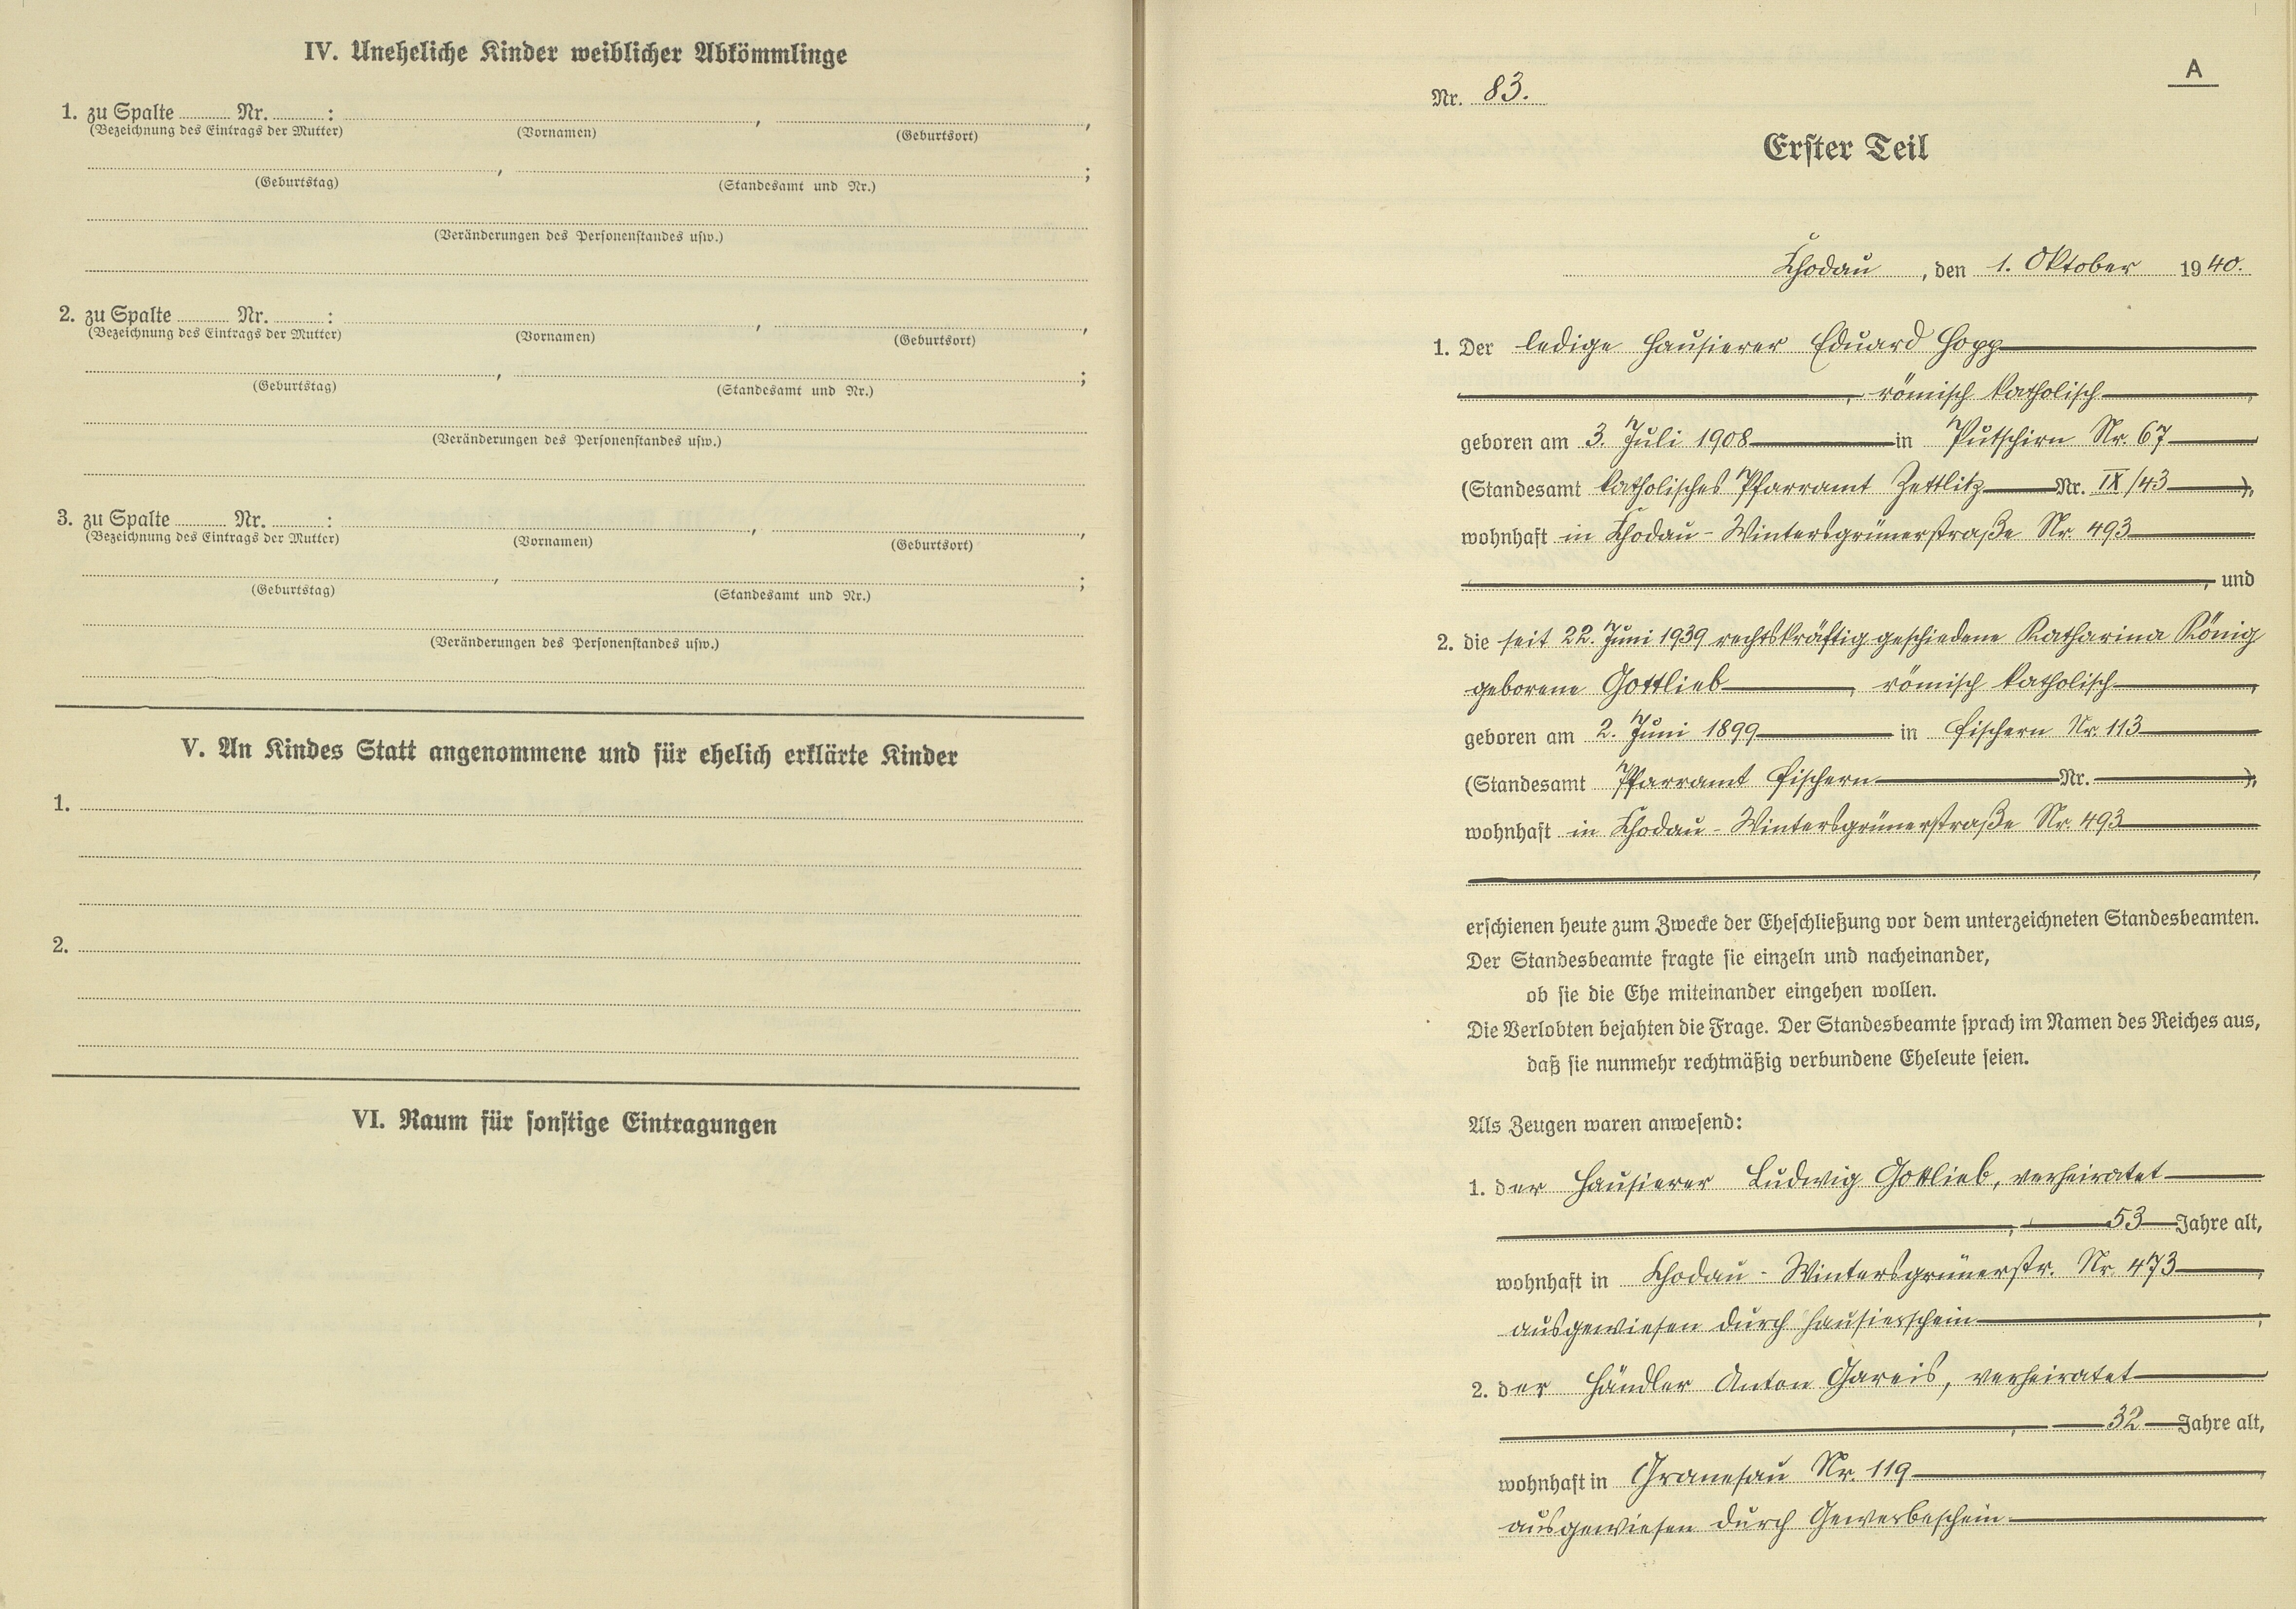 IV. Uneheliche Kinder weiblicher Abkömmlinge
1. zu Spalte ........ Nr. ........ :
(Bezeichnung des Eintrags der Mutter) (Vornamen) , (Geburtsort) ,
(Geburtstag) , (Standesamt und Nr.) ;
(Veränderungen des Personenstandes usw.)
2. zu Spalte ........ Nr. ........ :
(Bezeichnung des Eintrags der Mutter) (Vornamen) , (Geburtsort) ,
(Geburtstag) , (Standesamt und Nr.) ;
(Veränderungen des Personenstandes usw.)
3. zu Spalte ........ Nr. ........ :
(Bezeichnung des Eintrags der Mutter) (Vornamen) , (Geburtsort) ,
(Geburtstag) , (Standesamt und Nr.) ;
(Veränderungen des Personenstandes usw.)
V. An Kindes Statt angenommene und für ehelich erklärte Kinder
1.
2.
VI. Raum für sonstige Eintragungen
A
Nr. 83.
Erster Teil
Chodau , den 1. Oktober 1940.
1. Der ledige Hausierer Eduard Hopp
, römisch katholisch ,
geboren am 3. Juli 1908 in Putschirn Nr. 67
(Standesamt katholisches Pfarramt Zettlitz Nr. IX/43 ),
wohnhaft in Chodau - Wintersgrünerstraße Nr. 493
, und
2. die seit 22. Juni 1939 rechtskräftig geschiedene Katharina König
geborene Gottlieb , römisch katholisch ,
geboren am 2. Juni 1899 in Fischern Nr. 113
(Standesamt Pfarramt Fischern Nr. ),
wohnhaft in Chodau - Wintersgrünerstraße Nr. 493
,
erschienen heute zum Zwecke der Eheschließung vor dem unterzeichneten Standesbeamten.
Der Standesbeamte fragte sie einzeln und nacheinander,
ob sie die Ehe miteinander eingehen wollen.
Die Verlobten bejahten die Frage. Der Standesbeamte sprach im Namen des Reiches aus,
daß sie nunmehr rechtmäßig verbundene Eheleute seien.
Als Zeugen waren anwesend:
1. der Hausierer Ludwig Gottlieb, verheiratet
, 53 Jahre alt,
wohnhaft in Chodau - Wintersgrünerstr. Nr. 473 ,
ausgewiesen durch Hausierschein ,
2. der Händler Anton Gareis, verheiratet
, 32 Jahre alt,
wohnhaft in Granesau Nr. 119 ,
ausgewiesen durch Gewerbeschein